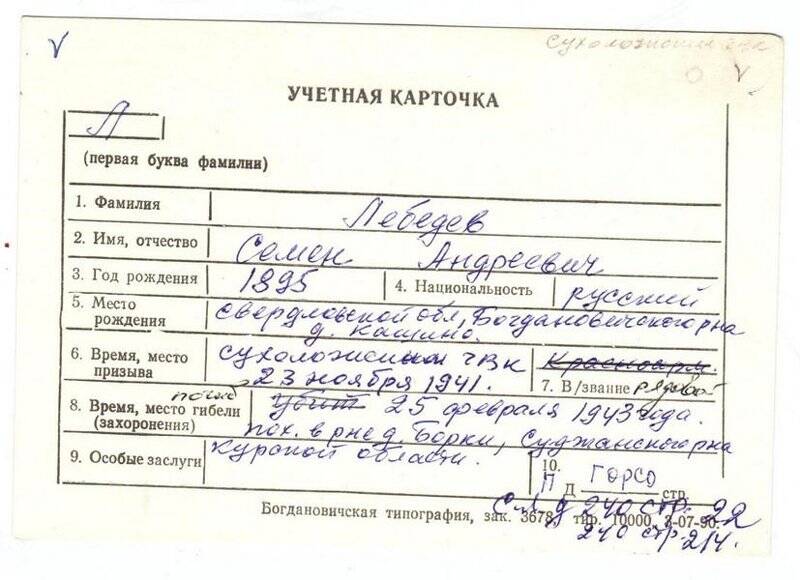 V
Сухоложский РВК
О V
УЧЕТНАЯ КАРТОЧКА
Л
(первая буква фамилии)
1. Фамилия Лебедев
2. Имя, отчество Семен Андреевич
3. Год рождения 1895 4. Национальность русский
5. Место рождения Свердловской обл, Богдановичского р-на д. Кашино.
6. Время, место призыва Сухоложским РВК 23 ноября 1941. Красноарм.
7. В/звание рядовой
8. Время, место гибели (захоронения) погиб Убит 25 февраля 1943 года.
пох. в р-не д. Борки, Суджанского р-на
9. Особые заслуги Курской области.
10. П Д ГОРСО стр.
д 240 стр. 22
240 стр. 214.
Богдановичская типография, зак. 3678, тир. 10000, 3-07-90.